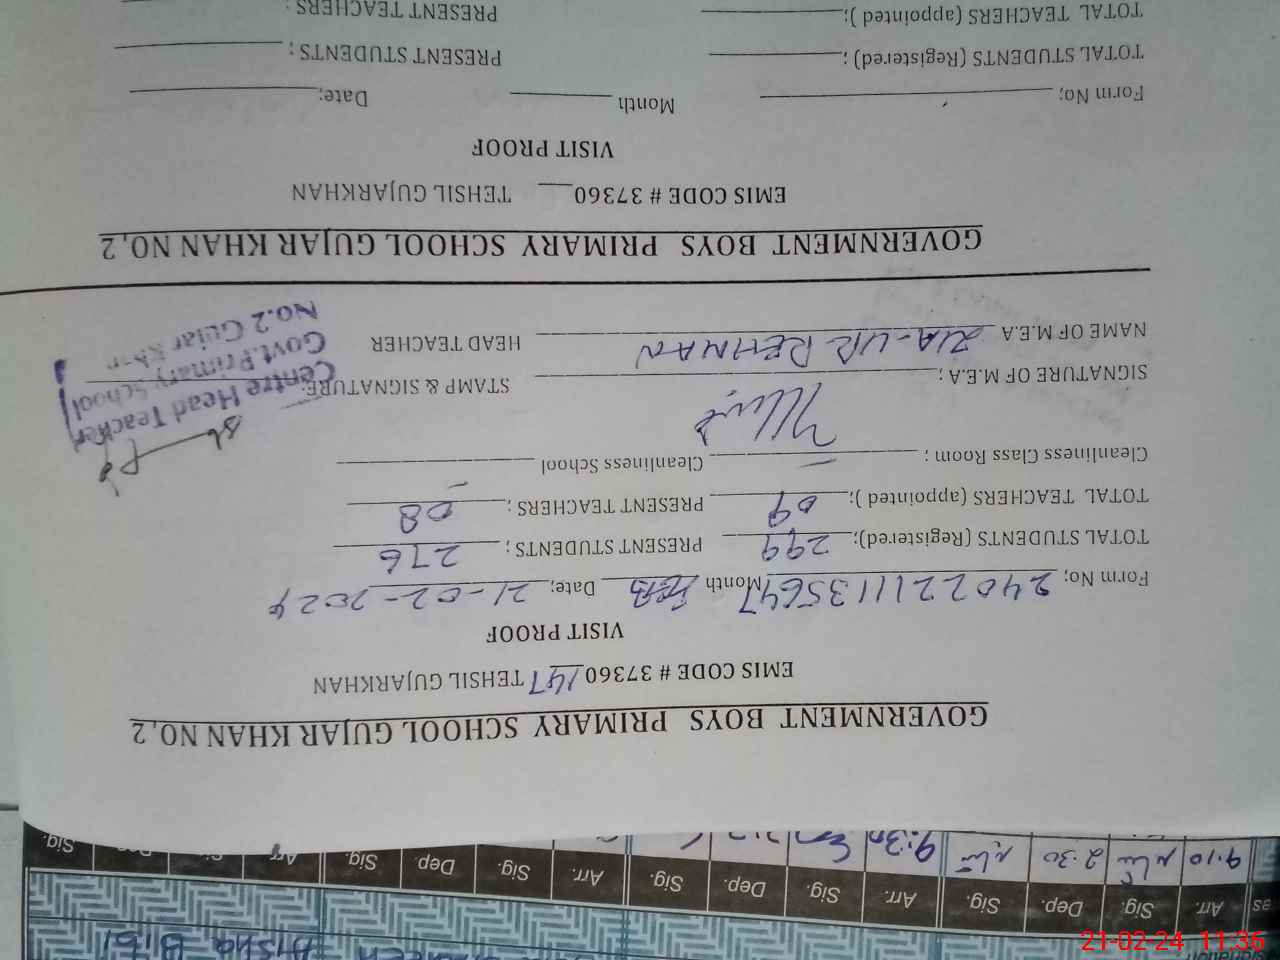 GOVERNMENT BOYS PRIMARY SCHOOL GUJAR KHAN NO,2
EMIS CODE # 37360147 TEHSIL GUJARKHAN
VISIT PROOF
Form No; 2402211135647 Month FEB Date; 21-02-2024
TOTAL STUDENTS (Registered); 299 PRESENT STUDENTS; 276
TOTAL TEACHERS (appointed ); 09 PRESENT TEACHERS; 08
Cleanliness Class Room ; — Cleanliness School —
SIGNATURE OF M.E.A ; STAMP & SIGNATURE:
NAME OF M.E.A ZIA-UR REHMAN HEAD TEACHER
Centre Head Teacher
Govt. Primary School
No.2 Gujar
GOVERNMENT BOYS PRIMARY SCHOOL GUJAR KHAN NO,2
EMIS CODE # 37360___ TEHSIL GUJARKHAN
VISIT PROOF
Form No; Month Date;
TOTAL STUDENTS (Registered) ; PRESENT STUDENTS ;
TOTAL TEACHERS (appointed ); PRESENT TEACHERS :
Aisha Bibi
Arr. Sig. Dep. Sig. Arr. Sig. Dep. Sig. Arr. Sig. Dep. Sig. Arr. Sig.
9.10 2.30 9:30
21-02-24 11:36